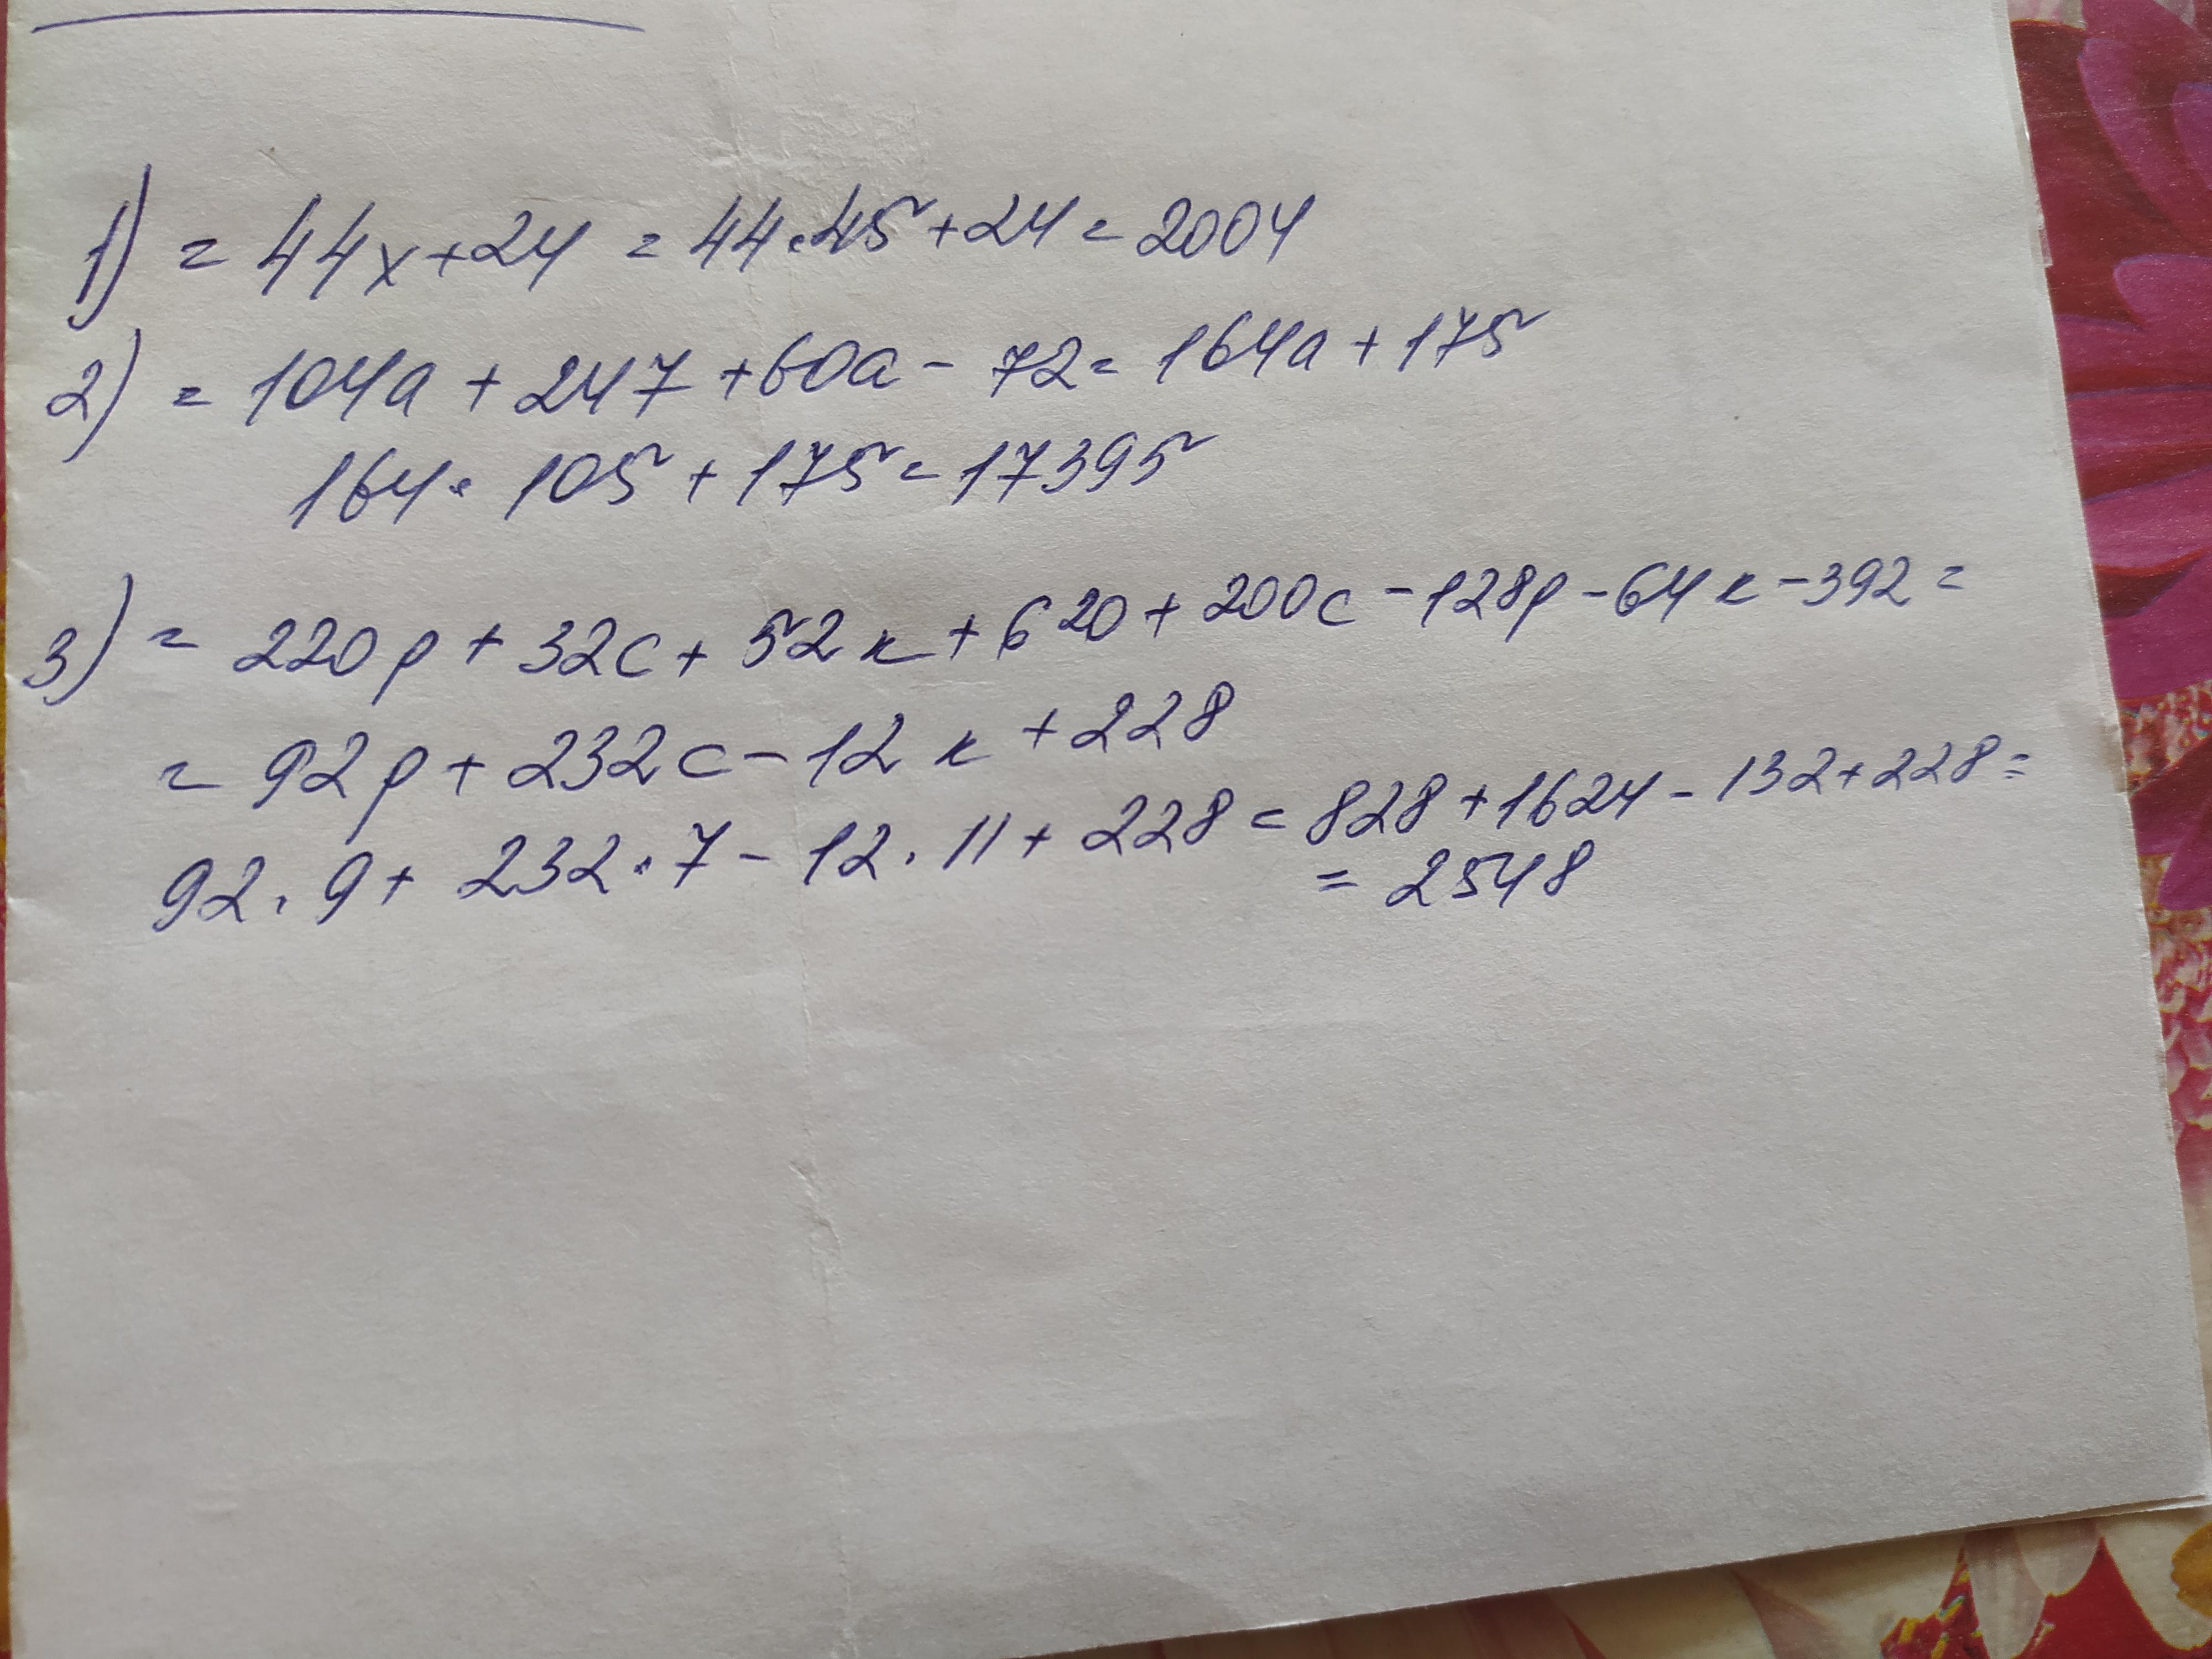 1) = 44x+24 = 44·45+24 = 2004
2) = 104a + 247 + 60a - 72 = 164a + 175
164 · 105 + 175 = 17395
3) = 220p + 32c + 52к + 620 + 200c - 128p - 64к - 392 =
= 92p + 232c - 12к + 228
92 · 9 + 232 · 7 - 12 · 11 + 228 = 828 + 1624 - 132 + 228 =
= 2548